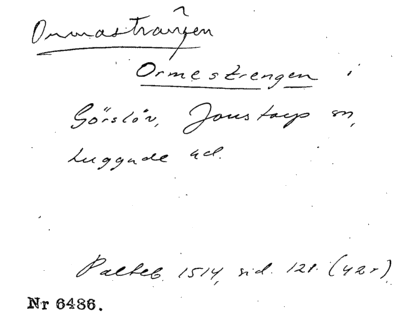 Ormastrången
Ormestrengen i
Görslöv, Jonstorp sn,
Luggude hd.
Palteb. 1514, sid. 121. (42r)
Nr 6486.